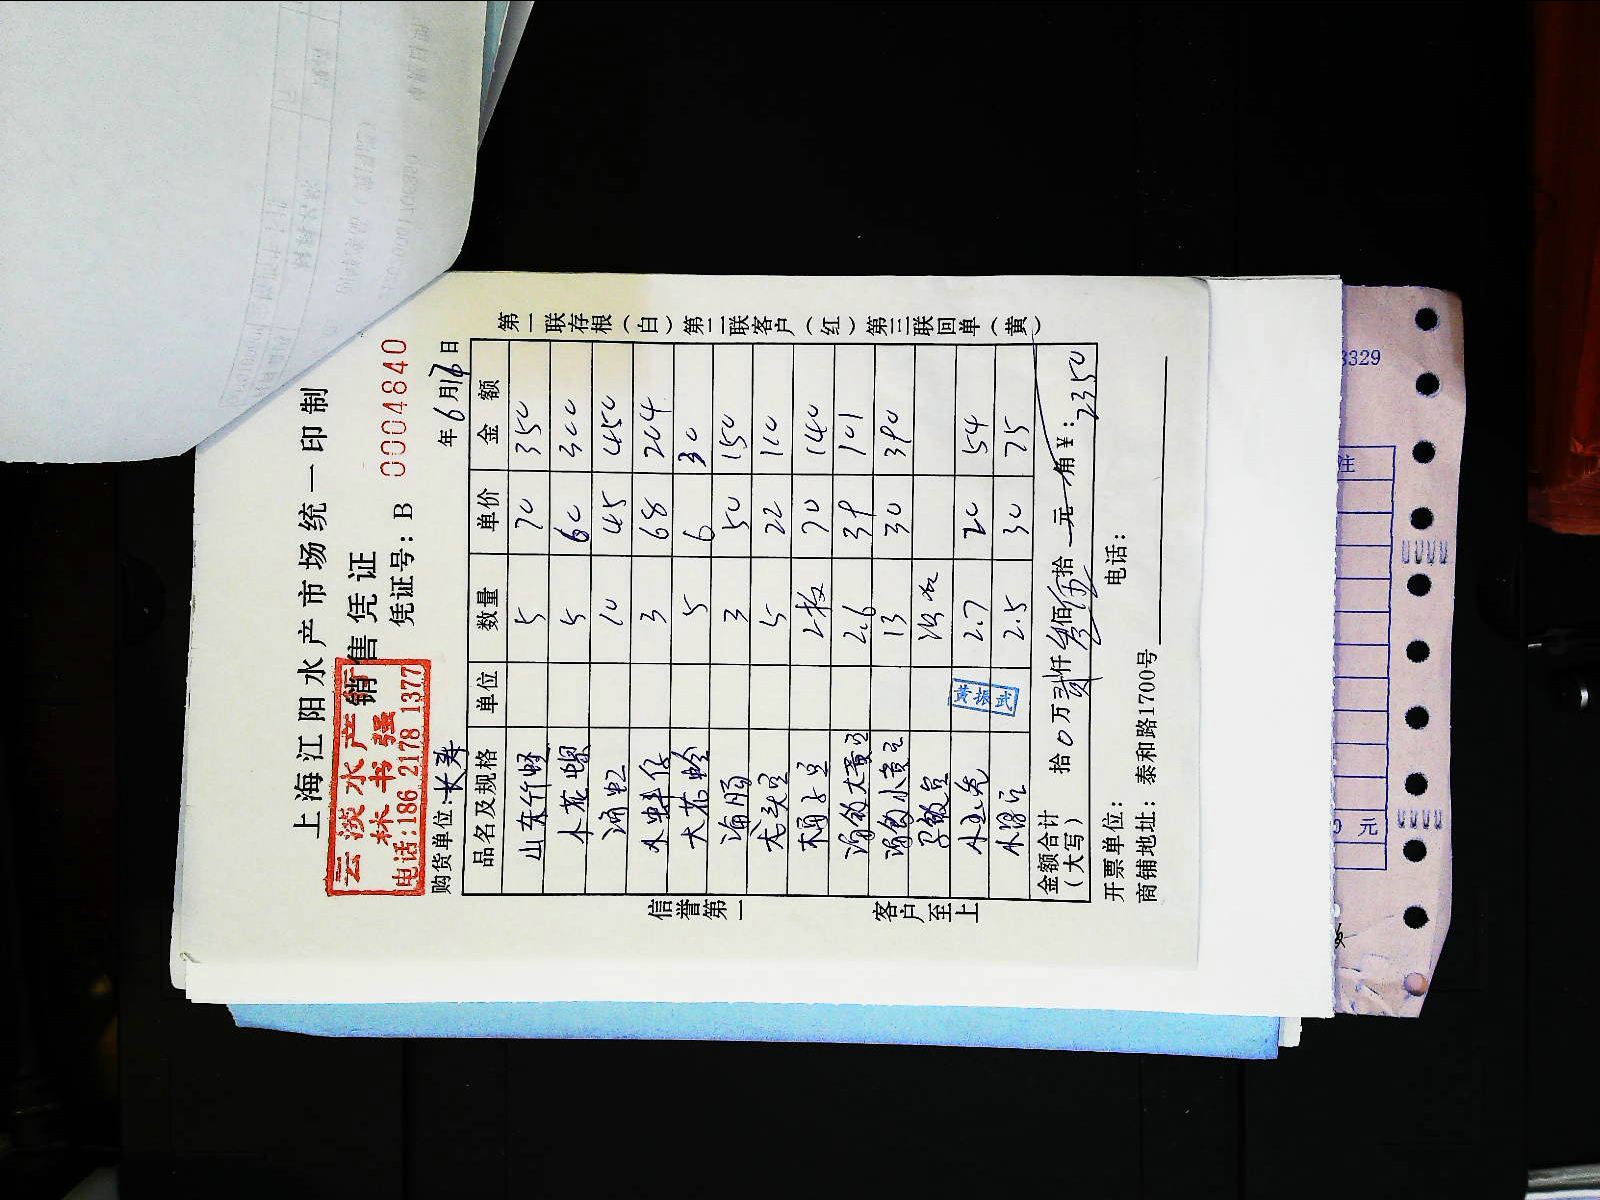 上海江阳水产市场统一印制
销售凭证
云淡水产行
林书强
电话:186 2178 1377
凭证号：B 0004840
购货单位:长寿 年6月17日
品名及规格 单位 数量 单价 金额
山东竹蛏 5 70 350
水花螺 5 60 300
海虹 10 45 450
水蚌仔 3 68 204
大花蛤 5 6 30
海肠 3 50 150
龙头豆 5 22 110
桶子豆 2板 70 140
海的大黄豆 2.6 39 101
海的小黄豆 13 30 390
没发
小玉秃 2.7 20 54
2.5 30 75
黄振武
金额合计（大写） 拾0万贰仟叁佰伍拾元角￥：2350
开票单位： 电话：
商铺地址：泰和路1700号
第一联存根（白）第二联客户（红）第三联回单（黄）
信誉第一
客户至上
3329
注
元